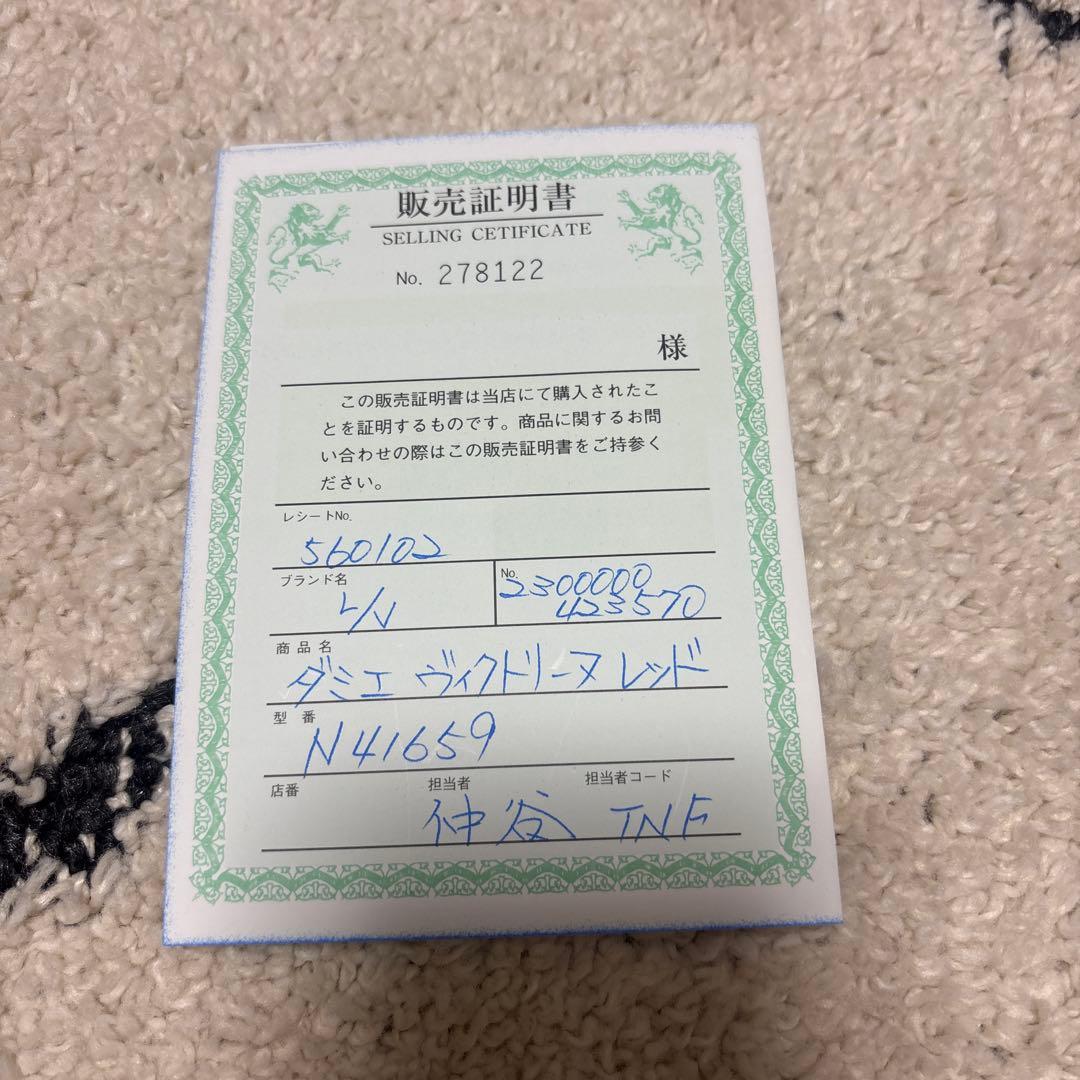 販売証明書
SELLING CETIFICATE
No. 278122
様
この販売証明書は当店にて購入されたこ
とを証明するものです。商品に関するお問
い合わせの際はこの販売証明書をご持参く
ださい。
レシートNo.
560102
ブランド名
L/V
No.
2300000
423570
商品名
ダミエ ヴィクトリーヌ レッド
型番
N41659
店番 担当者 担当者コード
仲谷 TNF